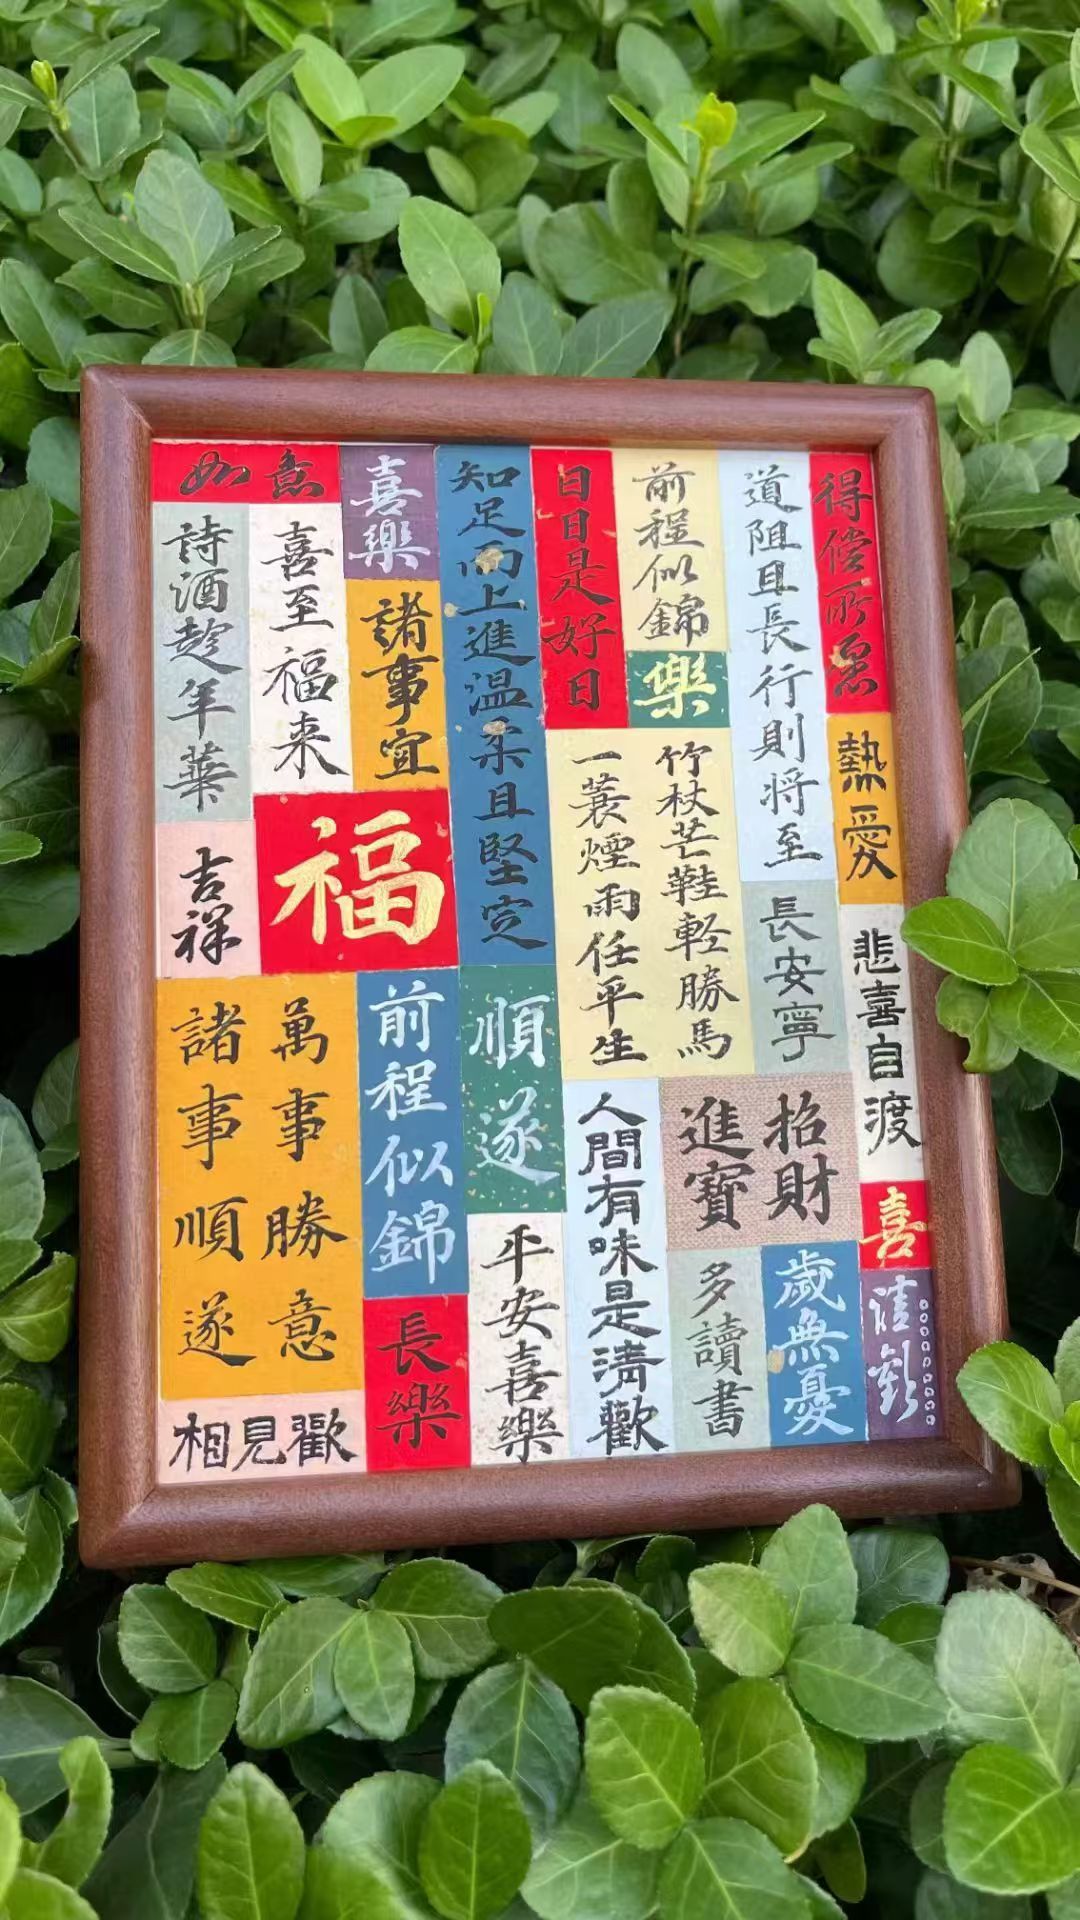 得偿所愿
熱愛
悲喜自渡
喜
道阻且長行則将至
長安寧
招財
進寶
歲無憂
多讀書
前程似錦
樂
竹杖芒鞋輕勝馬
一蓑煙雨任平生
日日是好日
人間有味是清歡
知足而上進温柔且堅定
順遂
平安喜樂
喜樂
諸事宜
如意
喜至福来
詩酒趁年華
福
吉祥
前程似錦
長樂
萬事勝意
諸事順遂
相見歡